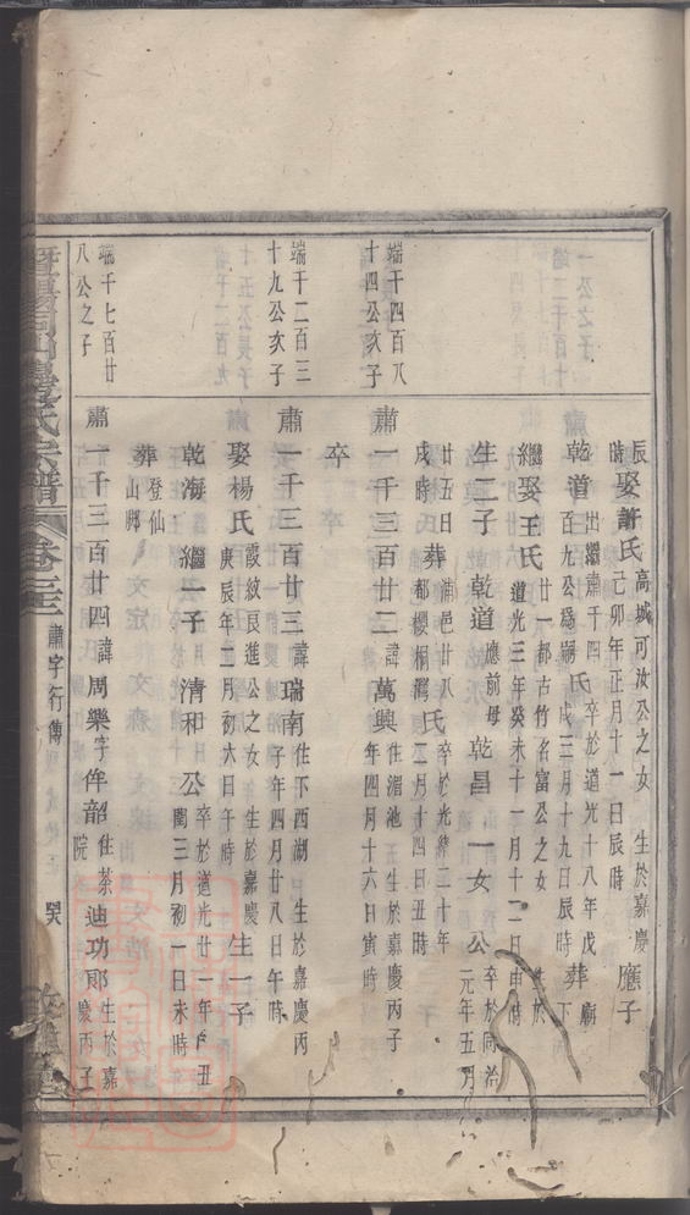 辰時娶許氏高城可汝公之女生於嘉慶己卯年正月十一日辰時應子
乾道出繼肅千四百九公爲嗣氏卒於道光十八年戊戌三月十九日辰時葬下廟
繼娶王氏廿一都古竹名富公之女生於道光三年癸未十一月十二日申時
生二子乾道應前母乾昌一女公卒於同治元年五月
廿五日戌時葬蕭邑廿八都櫻桐灣氏卒於光緒二十年二月十四日丑時
端千四百八十四公次子
肅一千三百廿二諱萬興住湄池五生於嘉慶丙子年四月十六日寅時
卒
端千二百三十九公次子
肅一千三百廿三諱瑞南住下西湖生於嘉慶丙子年四月廿八日午時
娶楊氏霞紋艮進公之女生於嘉慶庚辰年二月初六日午時生一子
乾海繼一子清和公卒於道光廿一年丑閏三月初一日未時
葬登仙山脚
端千七百廿八公之子
肅一千三百廿四諱周樂字侔韶住茶院迪功郎生於嘉慶丙子
暨陽同山邊氏宗譜卷三十三肅字行傳